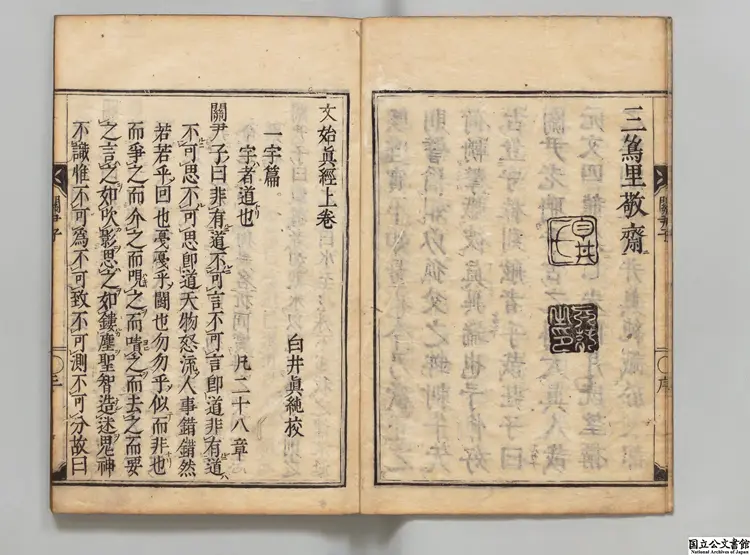 三里敬齋
白井氏
文始眞經上卷
白井眞純校
一字篇
字者道也 凡二十八章
關尹子曰非有道不可言不可言卽道非有道
不可思不可思卽道天物怒流人事錯錯然
若若乎回也戞戞乎鬪也勿勿乎似而非也
而爭之而介之而哯之而嘖之而去之而要
之言之如吹影思之如鏤塵聖智造迷鬼神
不識惟不可爲不可致不可測不可分故曰
關尹子 三
關尹子 序
国立公文書館
National Archives of Japan